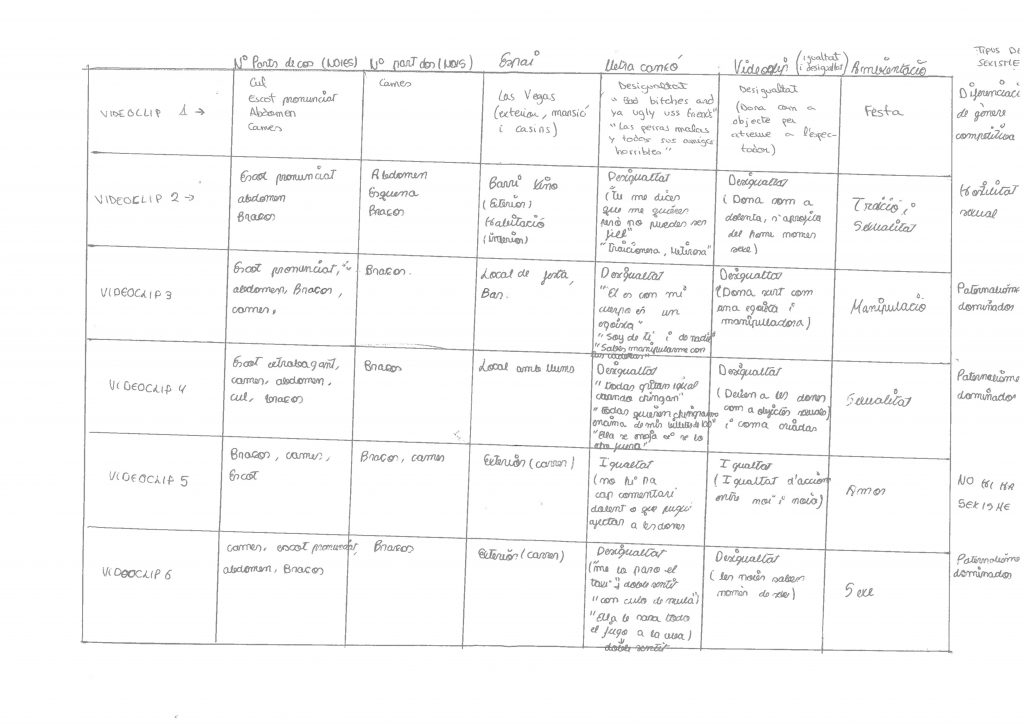 Nº Parts de cos (NOIES)
Nº part dos (NOIS)
Espai
Lletra cançó
Videoclip (igualtat i desigualtat)
Ambientació
TIPUS DE
SEXISME
VIDEOCLIP 1 →
Cul
Escot pronunciat
Abdomen
Cames
Cames
Las Vegas
(exterior, mansió
i casino)
Desigualtat
" Bad bitches and
ya ugly uss friends"
"Las perras malas
y todas sus amigas
horribles"
Desigualtat
(Dona com a
objecte per
atreure a l'espec-
tador)
Festa
Diferenciaci
de gènere
competitiva
VIDEOCLIP 2 →
Escot pronunciat
abdomen
Braços
Abdomen
Esquena
Braços
Barri
(Exterior)
Habitació
(interior)
Desigualtat
(Tu me dices
que me quieres
però no puedes ser
fiel"
"Traicionera, Mentirosa"
Desigualtat
(Dona com a
dolenta, s'aprofita
del home només
sexe)
Traició i
Sexualitat
Hostilitat
sexual
VIDEOCLIP 3
Escot pronunciat,
abdomen, Braços,
cames,
Braços.
Local de festa,
Bar.
Desigualtat
"El es con mi
cuerpo es un
egoista"
"Soy de ti i de nadie"
"Sabes manipularme con
tus caderas"
Desigualtat
(Dona surt com
una egoista i
manipuladora)
Manipulació
Paternalisme
dominador
VIDEOCLIP 4
Escot extrabagant,
cames, abdomen,
cul, braços
Braços
Local amb llums
Desigualtat
"Todas gritan igual
cuando chingan"
"todas quieren
encima de mis billetes de 100"
"Ella se moja si se lo
Desigualtat
(Deixen a les dones
com a objectes sexuals)
i coma criadas
Sexualitat
Paternalisme
dominador
VIDEOCLIP 5
Braços, cames,
Escot
Braços, cames
Exterior (carrer)
Igualtat
(no hi ha
cap comentari
dolent o que pugui
afectar a les dones
Igualtat
(Igualtat d'accions
entre noi i noia)
Amor
NO HI HA
SEXISME
VIDEOCLIP 6
cames, escot pronunciat,
abdomen, Braços
Braços
Exterior (carrer)
Desigualtat
(me la paro el
taxi" ; doble sentit
"con culo de mula")
"Ella le saca todo
el jugo a la uva)
doble sentit
Desigualtat
(les noies saben
només de sexe)
Sexe
Paternalisme
dominador